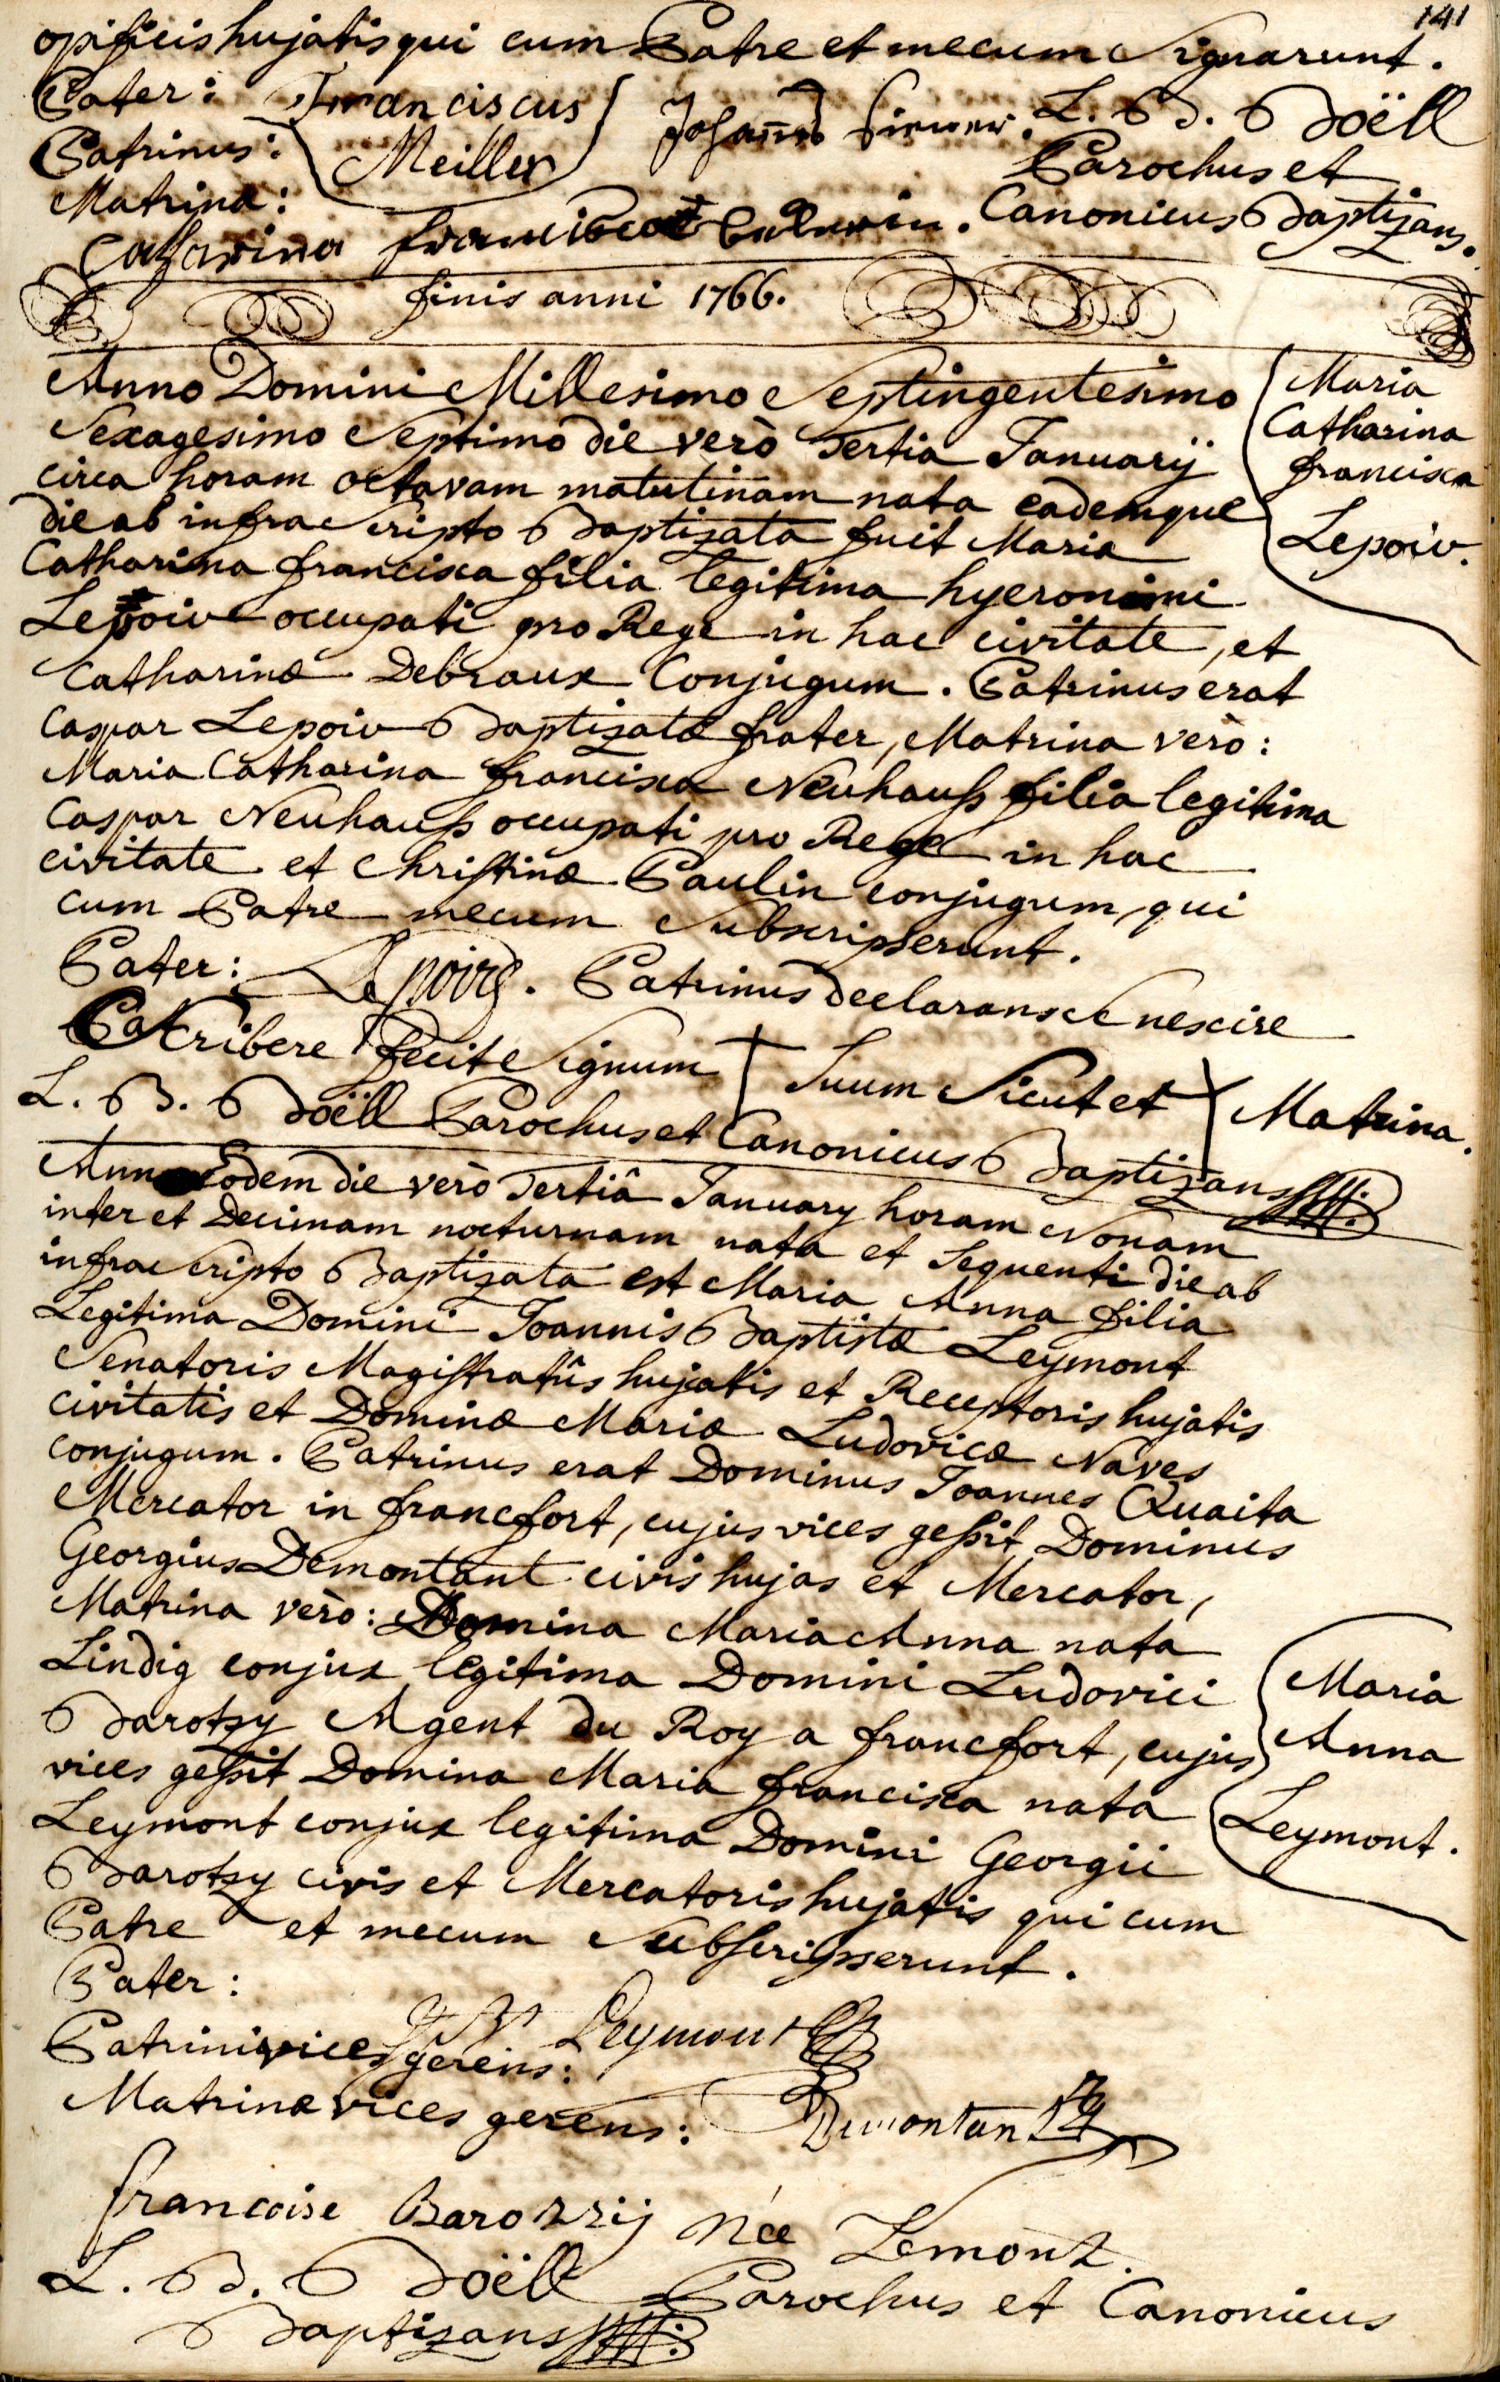 141
opificis hujatis qui cum Patre et mecum Signarunt.
Pater: Franciscus
Patrinus: Meiller Johann L. B. Boëll
Matrina: Parochus et
Catharina Canonicus Baptizans.
finis anni 1766.
Anno Domini Millesimo Septingentesimo
Sexagesimo Septimo die verò Tertia Januarij
circa horam octavam matutinam nata eademque
die ab infra Scripto Baptizata fuit Maria
Catharina francisca filia legitima hyeronimi
Lepoiv occupati pro Rege in hac civitate, et
Catharinæ Debraux Conjugum. Patrinus erat
Caspar Lepoiv Baptizatæ frater, Matrina verò:
Maria Catharina francisca Neuhauß filia legitima
Caspar Neuhauß occupati pro Rege in hac
civitate et Christinæ Paulin conjugum, qui
cum Patre mecum Subscripserunt.
Maria
Catharina
francisca
Lepoiv.
Pater: Lepoire. Patrinus declarans se nescire
Scribere fecit Signum Suum Sicut et Matrina.
L. B. Boëll Parochus et Canonicus Baptizans
Anno Eodem die verò Tertiâ January horam Nonam
inter et Decimam nocturnam nata et Sequenti die ab
infra Scripto Baptizata est Maria Anna filia
Legitima Domini Joannis Baptistæ Leymont
Senatoris Magistratûs hujatis et Receptoris hujatis
civitatis et Dominæ Mariæ Ludovicæ Naves
conjugum. Patrinus erat Dominus Joannes Quaita
Mercator in francfort, cujus vices geßit Dominus
Georgius Demontant civis hujas et Mercator,
Matrina verò: Domina Maria Anna nata
Lindig conjux legitima Domini Ludovici
Barotzy Agent du Roy a francfort, cujus
vices geßit Domina Maria francisca nata
Leymont conjux legitima Domini Georgii
Barotzy civis et Mercatoris hujatis qui cum
Patre et mecum Subscripserunt.
Maria
Anna
Leymont.
Pater:
Leymont
Patrini vices gerens:
Matrinæ vices gerens: Dumontant
francoise Barozzij Née Lemont.
L. B. Boëll Parochus et Canonicus
Baptizans